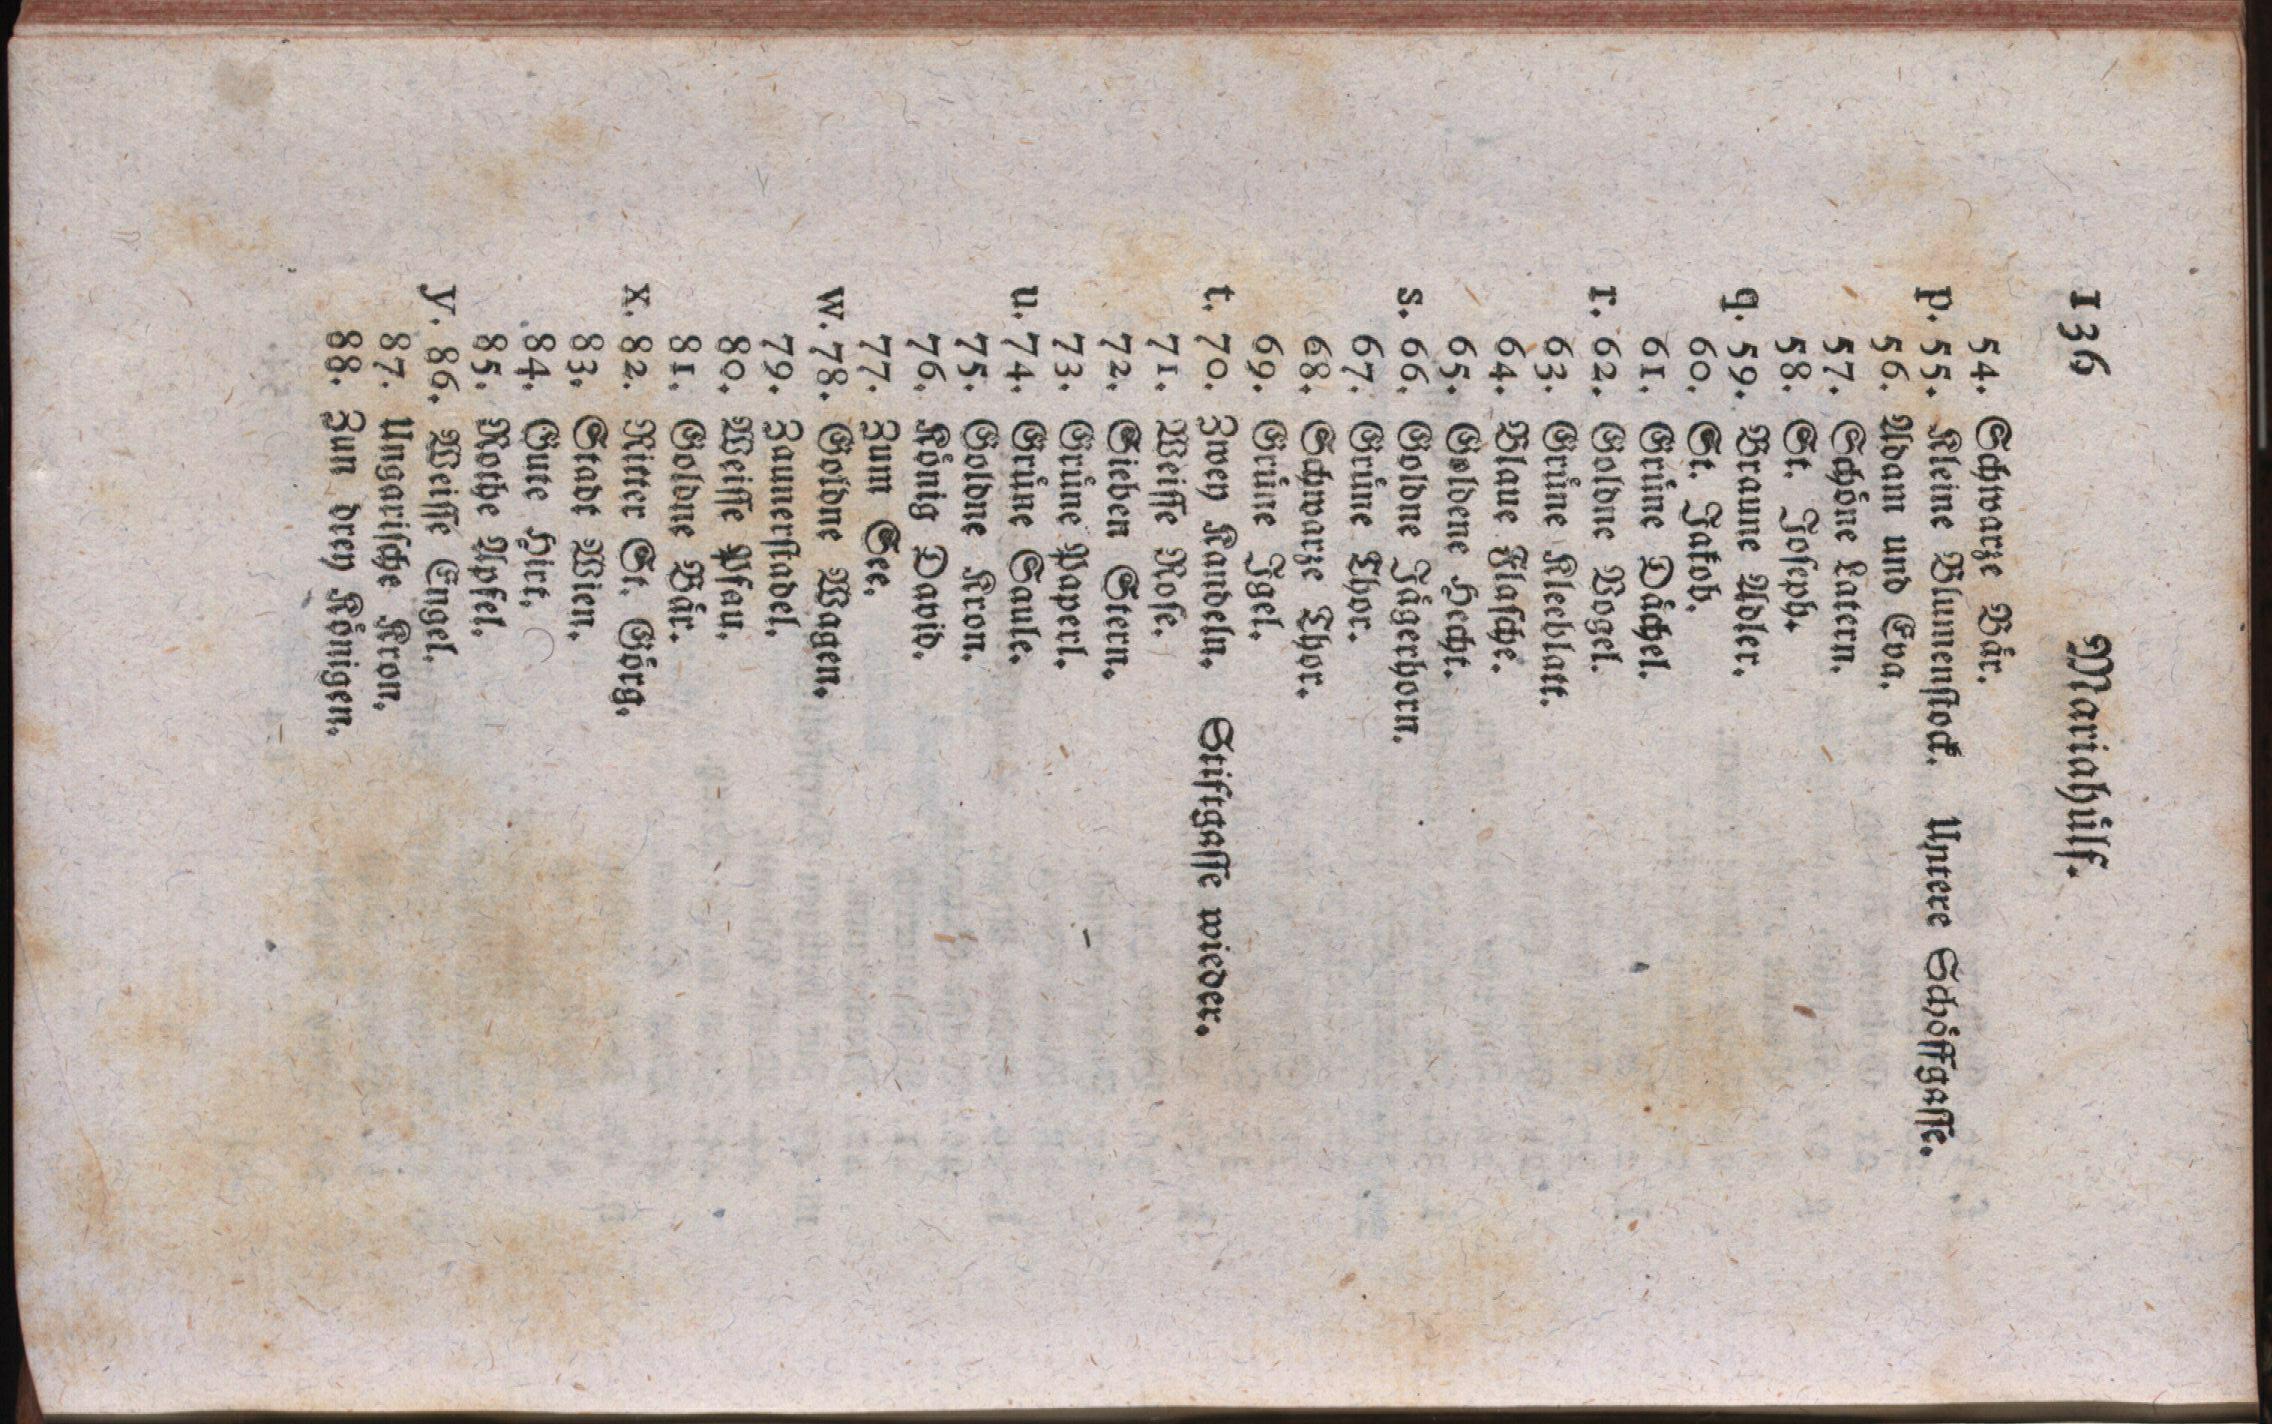 136 Mariahülf.
54. Schwarze Bär.
p. 55. Kleine Blumenstock. Untere Schöffgasse.
56. Adam und Eva.
57. Schöne Latern.
58. St. Joseph.
q. 59. Braune Adler.
60. St. Jakob.
61. Grüne Dächel.
r. 62. Goldne Vogel.
63. Grüne Kleeblatt.
64. Blaue Flasche.
65. Goldene Hecht.
s. 66. Goldne Jägerhorn.
67. Grüne Thor.
68. Schwarze Thor.
69. Grüne Igel.
t. 70. Zwey Kandeln. Stiftgasse wieder.
71. Weisse Rose.
72. Sieben Stern.
73. Grüne Paperl.
u. 74. Grüne Saule.
75. Goldne Kron.
76. König David.
77. Zum See.
w. 78. Goldne Wagen.
79. Zaunerstadel.
80. Weisse Pfau.
81. Goldne Bär.
x. 82. Ritter St. Görg.
83. Stadt Wien.
84. Gute Hirt.
85. Rothe Apfel.
y. 86. Weisse Engel.
87. Ungarische Kron.
88. Zun drey Königen.